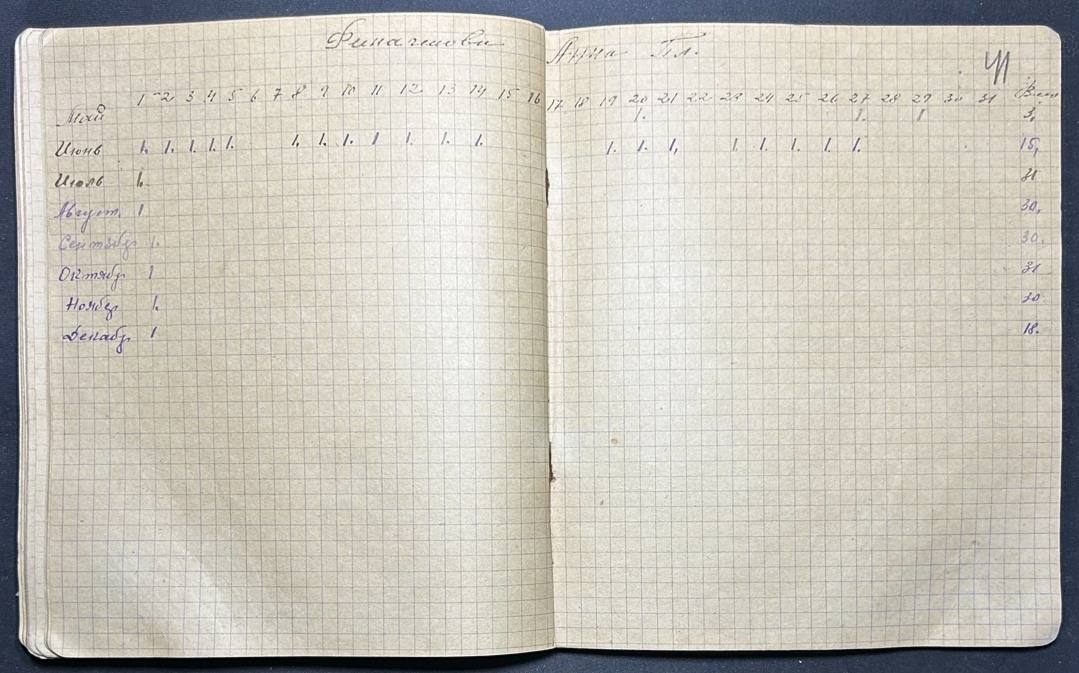 Анна Пл.
41
1 2 3 4 5 6 7 8 9 10 11 12 13 14 15 16 17 18 19 20 21 22 23 24 25 26 27 28 29 30 31
Май 1. 1. 1 3,
Июнь 1. 1. 1. 1. 1. 1. 1. 1. 1 1. 1. 1. 1. 1. 1, 1. 1. 1. 1. 1. 15,
Июль 1. 31
Август. 1 30,
Сентябр 1. 30.
Октябр 1 31
Ноябр 1. 30
Декабр 1 18.